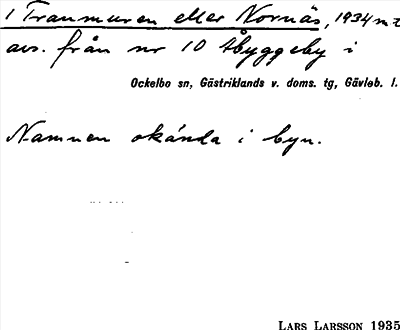 1 Tranmuren eller Kornäs, 1934 m 2
avs. från nr 10 Åbyggeby i
Ockelbo sn, Gästriklands v. doms. tg, Gävleb. l.
Namnen okända i byn.
LARS LARSSON 1935